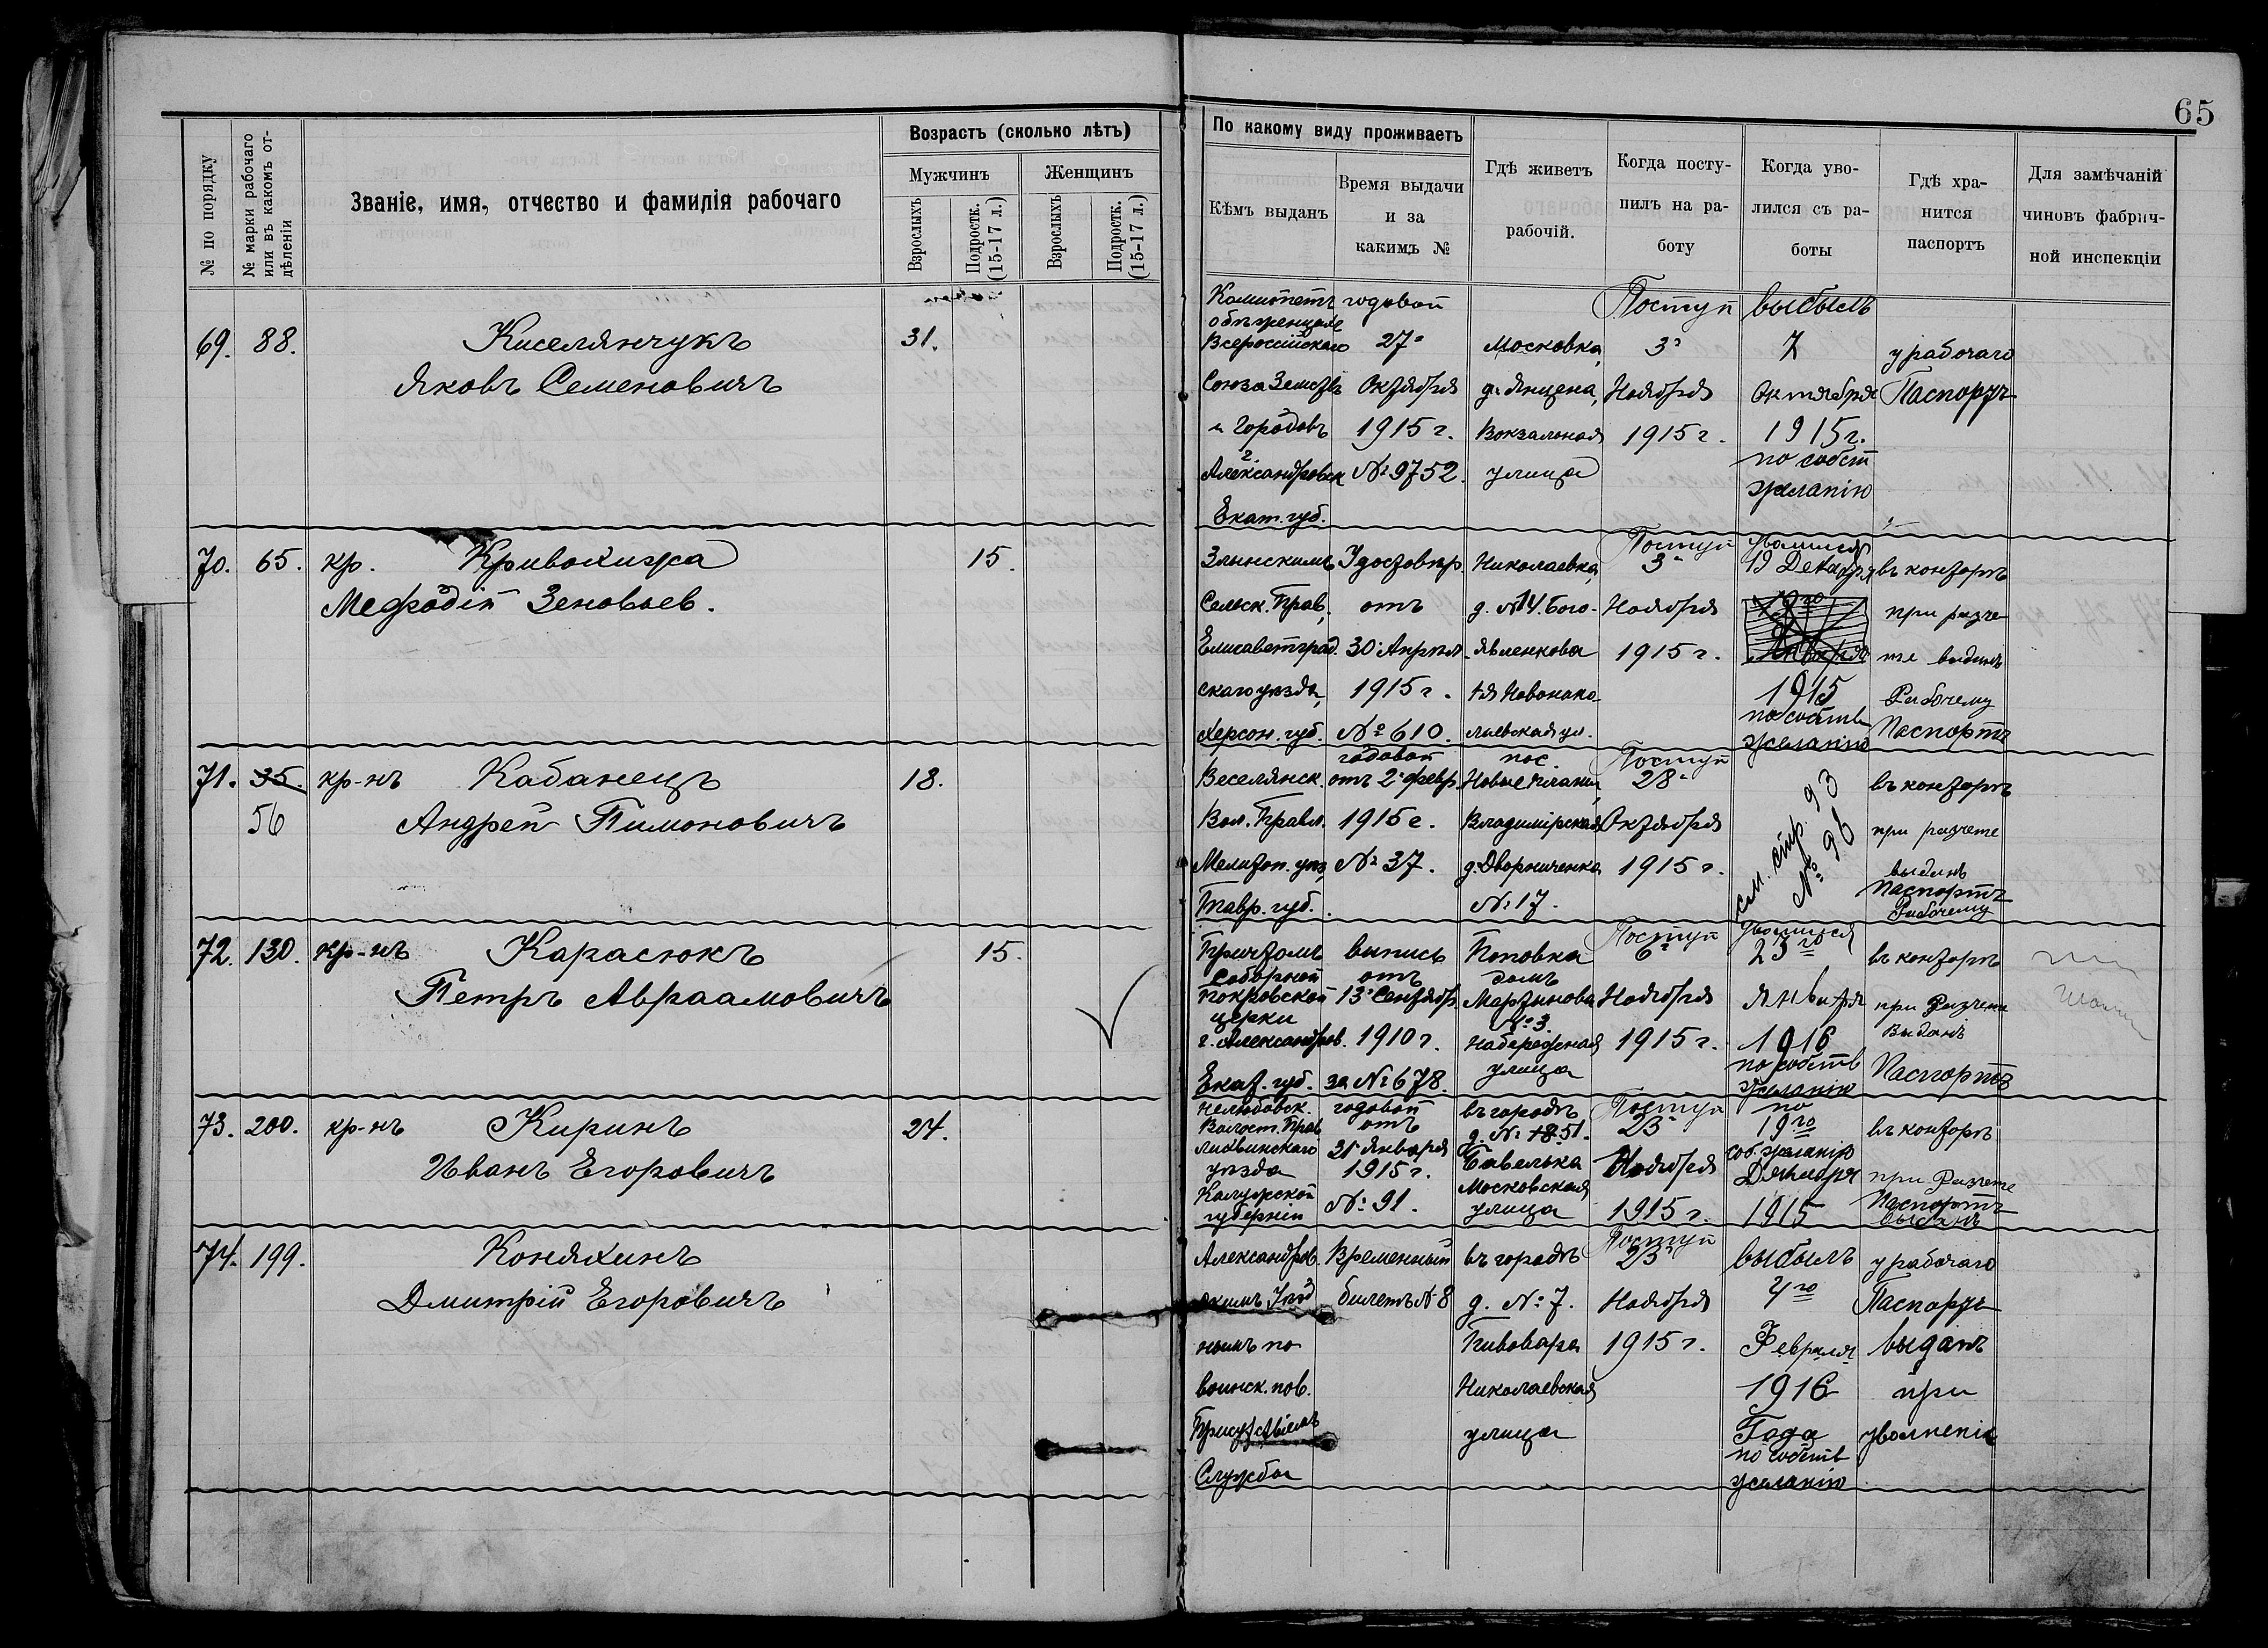 65
№ по порядку
№ марки рабочаго или въ какомъ отдѣленіи
Званіе, имя, отчество и фамилія рабочаго
Возрастъ (сколько лѣтъ)
Мужчинъ
Женщинъ
Взрослыхъ
Подростк. (15-17 л.)
Взрослыхъ
Подростк. (15-17 л.)
По какому виду проживаетъ
Кѣмъ выданъ
Время выдачи
и за
какимъ №
Гдѣ живетъ
рабочій.
Когда посту-
пилъ на ра-
боту
Когда уво-
лился съ ра-
боты
Гдѣ хра-
нится
паспортъ
Для замѣчаній
чиновъ фабрич-
ной инспекціи
69. 88.
Киселянчукъ
Яковъ Семеновичъ
31.
Комитетъ
Всероссійскаго
Союза Земствъ
и Городовъ
г.
Александровск
Екат. губ.
годовой
27
Октября
1915 г.
№ 9752.
Московка,
д. Янцена,
Вокзальная
улица
Поступ
3
Ноября
1915 г.
выбылъ
7
Октября
1915 г.
по собст
желанію
у рабочаго
Паспортъ
70. 65. кр.
Кривохижа
Мефодій Зеновьев.
15.
Злынскимъ
Сельск. Прав.
Елисаветград.
скаго уѣзда,
Херсон. губ.
Удостовѣр.
отъ
30 Апрѣля
1915 г.
№ 610.
Николаевка,
д. №14. Бого-
явленкова
Новонико-
лаевская ул.
Поступ
3
Ноября
1915 г.
уволился
19 Декабря
1915
по собств
желанію
въ конторѣ
при разче
те выданъ
Рабочему
Паспортъ
71. 35. кр-нъ
56
Кабанецъ
Андрей Пимоновичъ
18.
Веселянск.
Вол. Правл.
Мелитоп. уѣз,
Тавр. губ.
годовой
отъ 2 февр.
1915 г.
№ 37.
пос.
Новые планы,
Владимірская
д. Дворниченко
№ 17.
Поступ
28
Октября
1915 г.
см. стр. 93
№ 96
въ конторѣ
при разчете
выданъ
Паспортъ
Рабочему
72. 130. кр-нъ
Карасюкъ
Петръ Авраамовичъ
15.
Причтомъ
Соборной
Покровской
церкви
г. Александров.
Екат. губ.
выпись
отъ
13 Сентябр.
1910 г.
за № 678.
Поповка
домъ
Мартынова
№ 3.
Набережная
улица
Поступ
6
Ноября
1915 г.
уволился
23го
Января
1916
по собств
желанію
въ конторѣ
при Разчете
Выданъ
Паспортъ
73. 200. кр-нъ
Киринъ
Иванъ Егоровичъ
24.
Нелюбовск.
Волост. Прав
Лихвинскаго
уѣзда
Калужской
губерніи
годовой
отъ
31 Января
1915 г.
№ 91.
въ городѣ
д. № 1851.
Бавелька
Московская
улица
Поступ
23
Ноября
1915 г.
по
19го
соб. желанію
Декабря
1915
въ конторѣ
при Разчете
Паспортъ
выданъ
74. 199.
Коняхинъ
Дмитрій Егоровичъ
Александров.
скимъ Уѣзд
нымъ по
воинск. пов.
Присутствіемъ
Службы
Временный
билетъ № 8
въ городѣ
д. № 7.
Пивовара
Николаевская
улица
Поступ
23
Ноября
1915 г.
выбылъ
4го
Февраля
1916
Года
по собств
желанію
у рабочаго
Паспортъ
выданъ
при
уволненіи